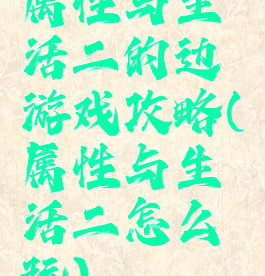 属性与生
活二的边
游戏攻略(
属性与生
活二怎么